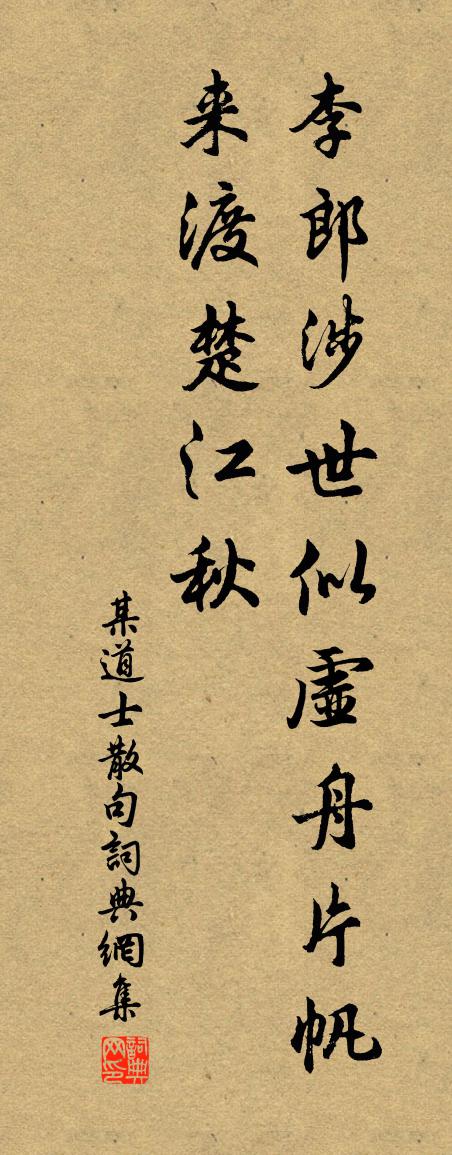 李郎涉世似虛舟片帆
来渡楚江秋
某道士散句詞典網集
詞典网印